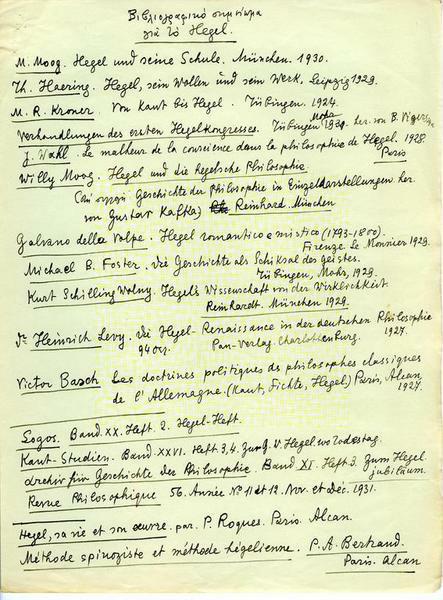 Βιβλιογραφικό σημείωμα
γιά τό Hegel.
M. Moog. Hegel und seine Schule. München. 1930.
Th. Haering. Hegel, sein Wollen und sein Werk. Leipzig 1929.
M. R. Kroner. Von Kant bis Hegel. Tübingen. 1924.
Verhandlungen des ersten Hegelkongresses. Tübingen Mohr 1931. her. von B.
J. Wahl. Le malheur de la conscience dans la philosophie de Hegel. 1928.
Paris
Willy Moog. Hegel und die hegelsche Philosophie
Geschichte der Philosophie in Einzeldarstellungen her.
von Gustav Kafka) Reinhard. München
Galvano della Volpe. Hegel romantico e mistico (1793-1800).
Firenze. Le Monnier 1929.
Michael B. Foster. Die Geschichte als Schiksal des geistes.
Tübingen, Mohr, 1929.
Kurt Schilling Wolny. Hegels Wissenschaft von der Wirklichkeit
Reinhardt. München 1929.
Dr Heinrich Levy. Die Hegel-Renaissance in der deutschen Philosophie
94 σελ. Pan-Verlag. Charlottenburg. 1927.
Victor Basch Les doctrines politiques des philosophes classiques
de l'Allemagne. (Kant, Fichte, Hegel) Paris, Alcan,
1927.
Logos. Band. XX. Heft. 2. Hegel-Heft.
Kant-Studien. Band. XXVI. Heft 3,4. Zum G. V. Hegel 100 Todestag.
Archiv für Geschichte der Philosophie. Band XI. Heft 3. Zum Hegel
jubiläum.
Revue Philosophique 56. Année No 11 et 12. Nov. et Déc. 1931.
Hegel, sa vie et son œuvre. par. P. Roques. Paris. Alcan.
Méthode spinoziste et méthode hégelienne. P. A. Bertrand.
Paris. Alcan